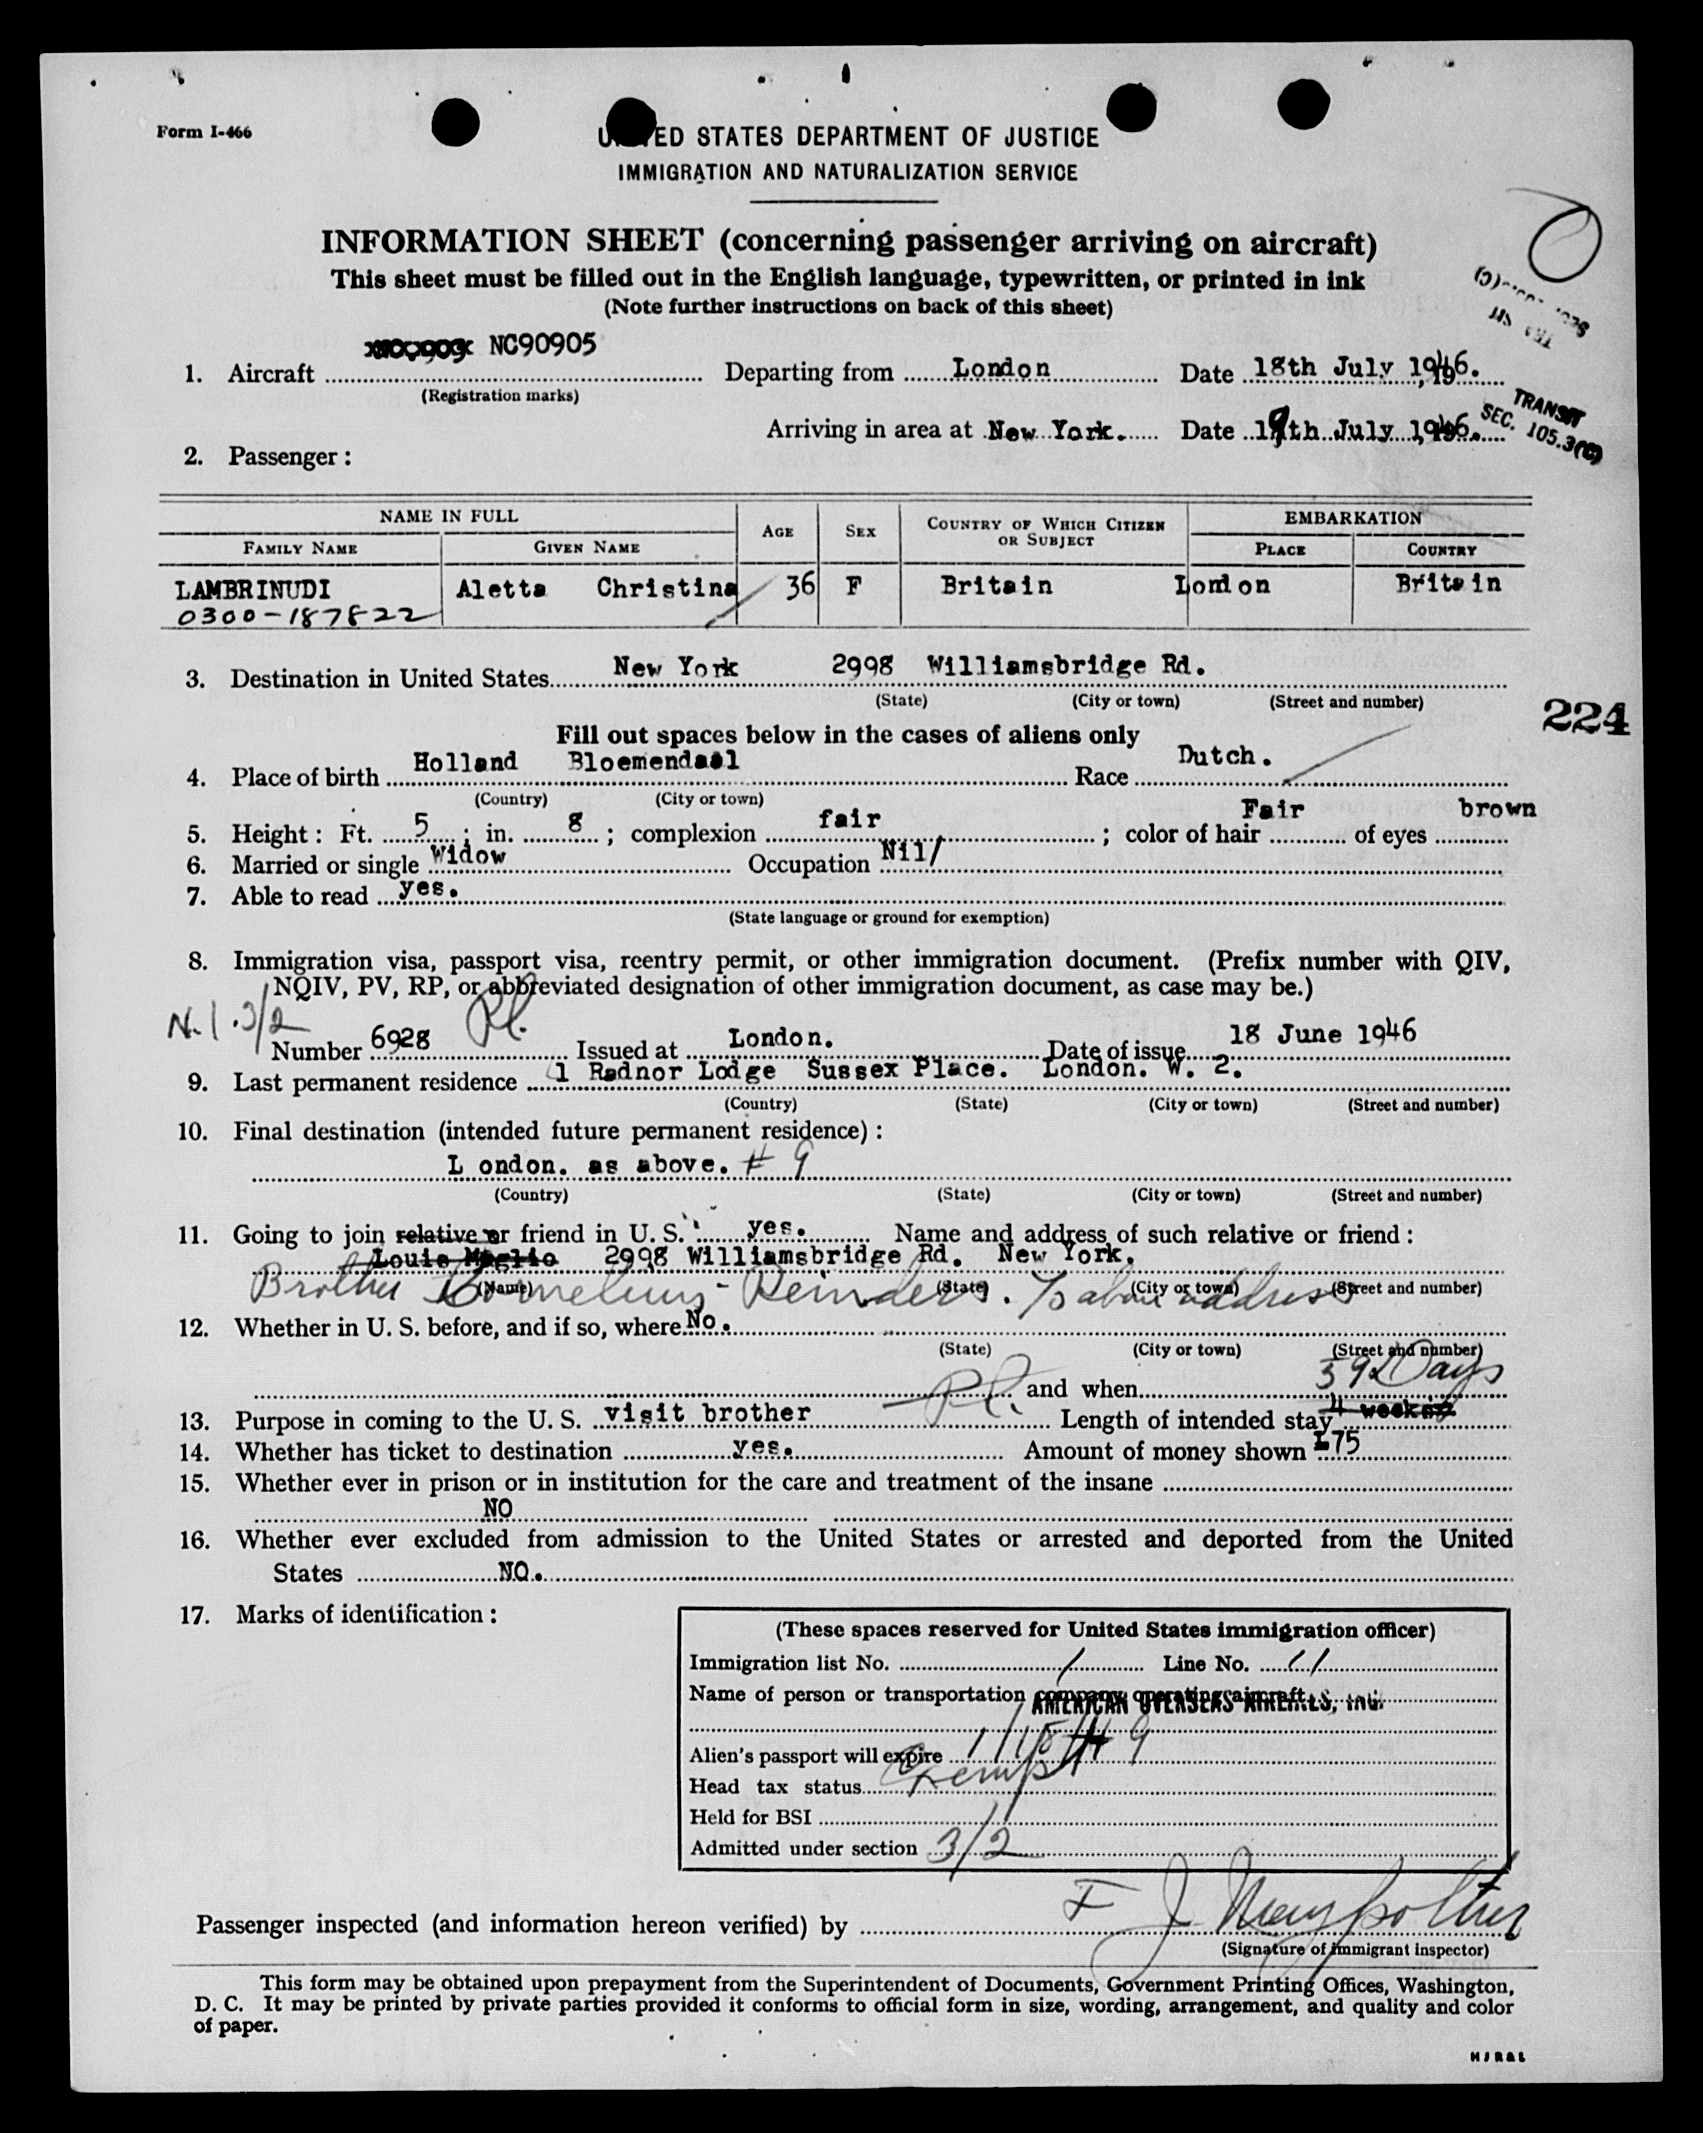 Form I-466
UNITED STATES DEPARTMENT OF JUSTICE
IMMIGRATION AND NATURALIZATION SERVICE
INFORMATION SHEET (concerning passenger arriving on aircraft)
This sheet must be filled out in the English language, typewritten, or printed in ink
(Note further instructions on back of this sheet)
NC90905
1. Aircraft Departing from London Date 18th July 1946.
(Registration marks)
TRANSIT
SEC. 105.3(C)
Arriving in area at New York. Date 19th July 1946.
2. Passenger:
NAME IN FULL AGE SEX COUNTRY OF WHICH CITIZEN OR SUBJECT EMBARKATION
FAMILY NAME GIVEN NAME PLACE COUNTRY
LAMBRINUDI Aletta Christina 36 F Britain London Britain
0300-187822
3. Destination in United States New York 2998 Williamsbridge Rd.
(State) (City or town) (Street and number)
224
Fill out spaces below in the cases of aliens only
4. Place of birth Holland Bloemendaal Race Dutch.
(Country) (City or town)
5. Height: Ft. 5; in. 8; complexion fair; color of hair Fair of eyes brown
6. Married or single Widow Occupation Nil/
7. Able to read yes.
(State language or ground for exemption)
8. Immigration visa, passport visa, reentry permit, or other immigration document. (Prefix number with QIV,
NQIV, PV, RP, or abbreviated designation of other immigration document, as case may be.)
3/2
Number 6928 Issued at London. Date of issue 18 June 1946
9. Last permanent residence 1 Radnor Lodge Sussex Place. London. W. 2.
(Country) (State) (City or town) (Street and number)
10. Final destination (intended future permanent residence):
L ondon. as above. # 9
(Country) (State) (City or town) (Street and number)
11. Going to join relative or friend in U. S. yes. Name and address of such relative or friend:
Louis Maglio 2998 Williamsbridge Rd. New York.
(Name) (State) (City or town) (Street and number)
Brother Cornelius Reinders. To above address
12. Whether in U. S. before, and if so, where No.
(State) (City or town) (Street and number)
and when
59 Days
13. Purpose in coming to the U. S. visit brother Length of intended stay 4 weeks
14. Whether has ticket to destination yes. Amount of money shown £75
15. Whether ever in prison or in institution for the care and treatment of the insane
NO
16. Whether ever excluded from admission to the United States or arrested and deported from the United
States NO.
17. Marks of identification:
(These spaces reserved for United States immigration officer)
Immigration list No. 1 Line No. 11
Name of person or transportation company operating aircraft
AMERICAN OVERSEAS AIRLINES, INC.
Alien's passport will expire
Head tax status Exempt
Held for BSI
Admitted under section 3/2
Passenger inspected (and information hereon verified) by F J
(Signature of immigrant inspector)
This form may be obtained upon prepayment from the Superintendent of Documents, Government Printing Offices, Washington,
D. C. It may be printed by private parties provided it conforms to official form in size, wording, arrangement, and quality and color
of paper.
HJR&L